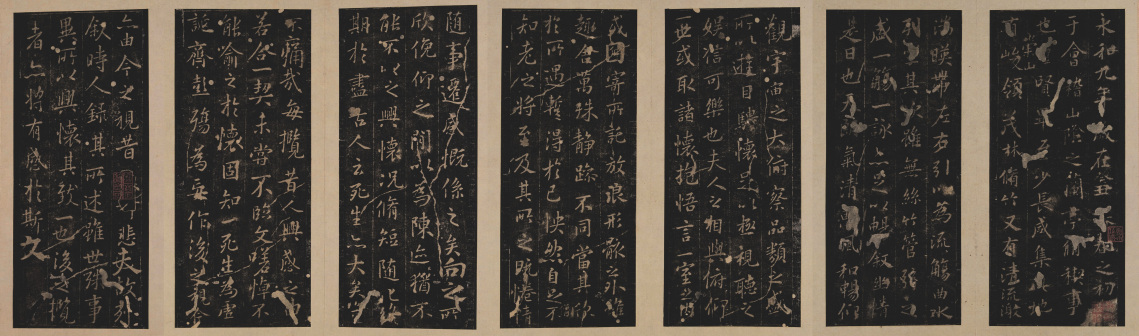 永和九年在癸丑之初
于會稽山陰之蘭亭脩稧事
也賢至少長咸集此地
有崇山峻領茂林脩竹又有清流激
湍暎帶左右引以為流觴曲水
列其次雖無絲竹管弦之
盛一觴一詠亦足以暢敘幽情
是日也氣清風和暢仰
觀宇宙之大俯察品類之盛
所以遊目騁懷足以極視聽之
娛信可樂也夫人之相與俯仰
一世或取諸懷抱悟言一室之內
或因寄所託放浪形骸之外雖
趣舍萬殊靜躁不同當其欣
於所遇蹔得於己怏然自足不
知老之將至及其所之既惓情
隨事遷感慨係之矣向之所
欣俛仰之閒以為陳迹猶不
能不以之興懷況脩短隨化終
期於盡古人云死生亦大矣豈
不痛哉每攬昔人興感之由
若合一契未嘗不臨文嗟悼不
能喻之於懷固知一死生為虛
誕齊彭殤為妄作後之視今
亦由今之視昔悲夫故列
敘時人錄其所述雖世殊事
異所以興懷其致一也後之攬
者亦將有感於斯文